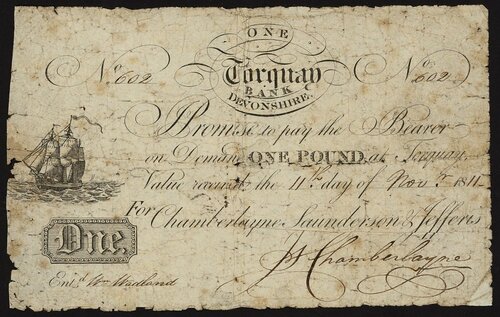 ONE
No 602 Torquay No 602
BANK
DEVONSHIRE.
I Promise to pay the Bearer
on Demand ONE POUND, at Torquay
Value received the 11th day of Novr 1811.
For Chamberlayne Saunderson & Jefferis
One Js Chamberlayne
Entd Wm Wadland